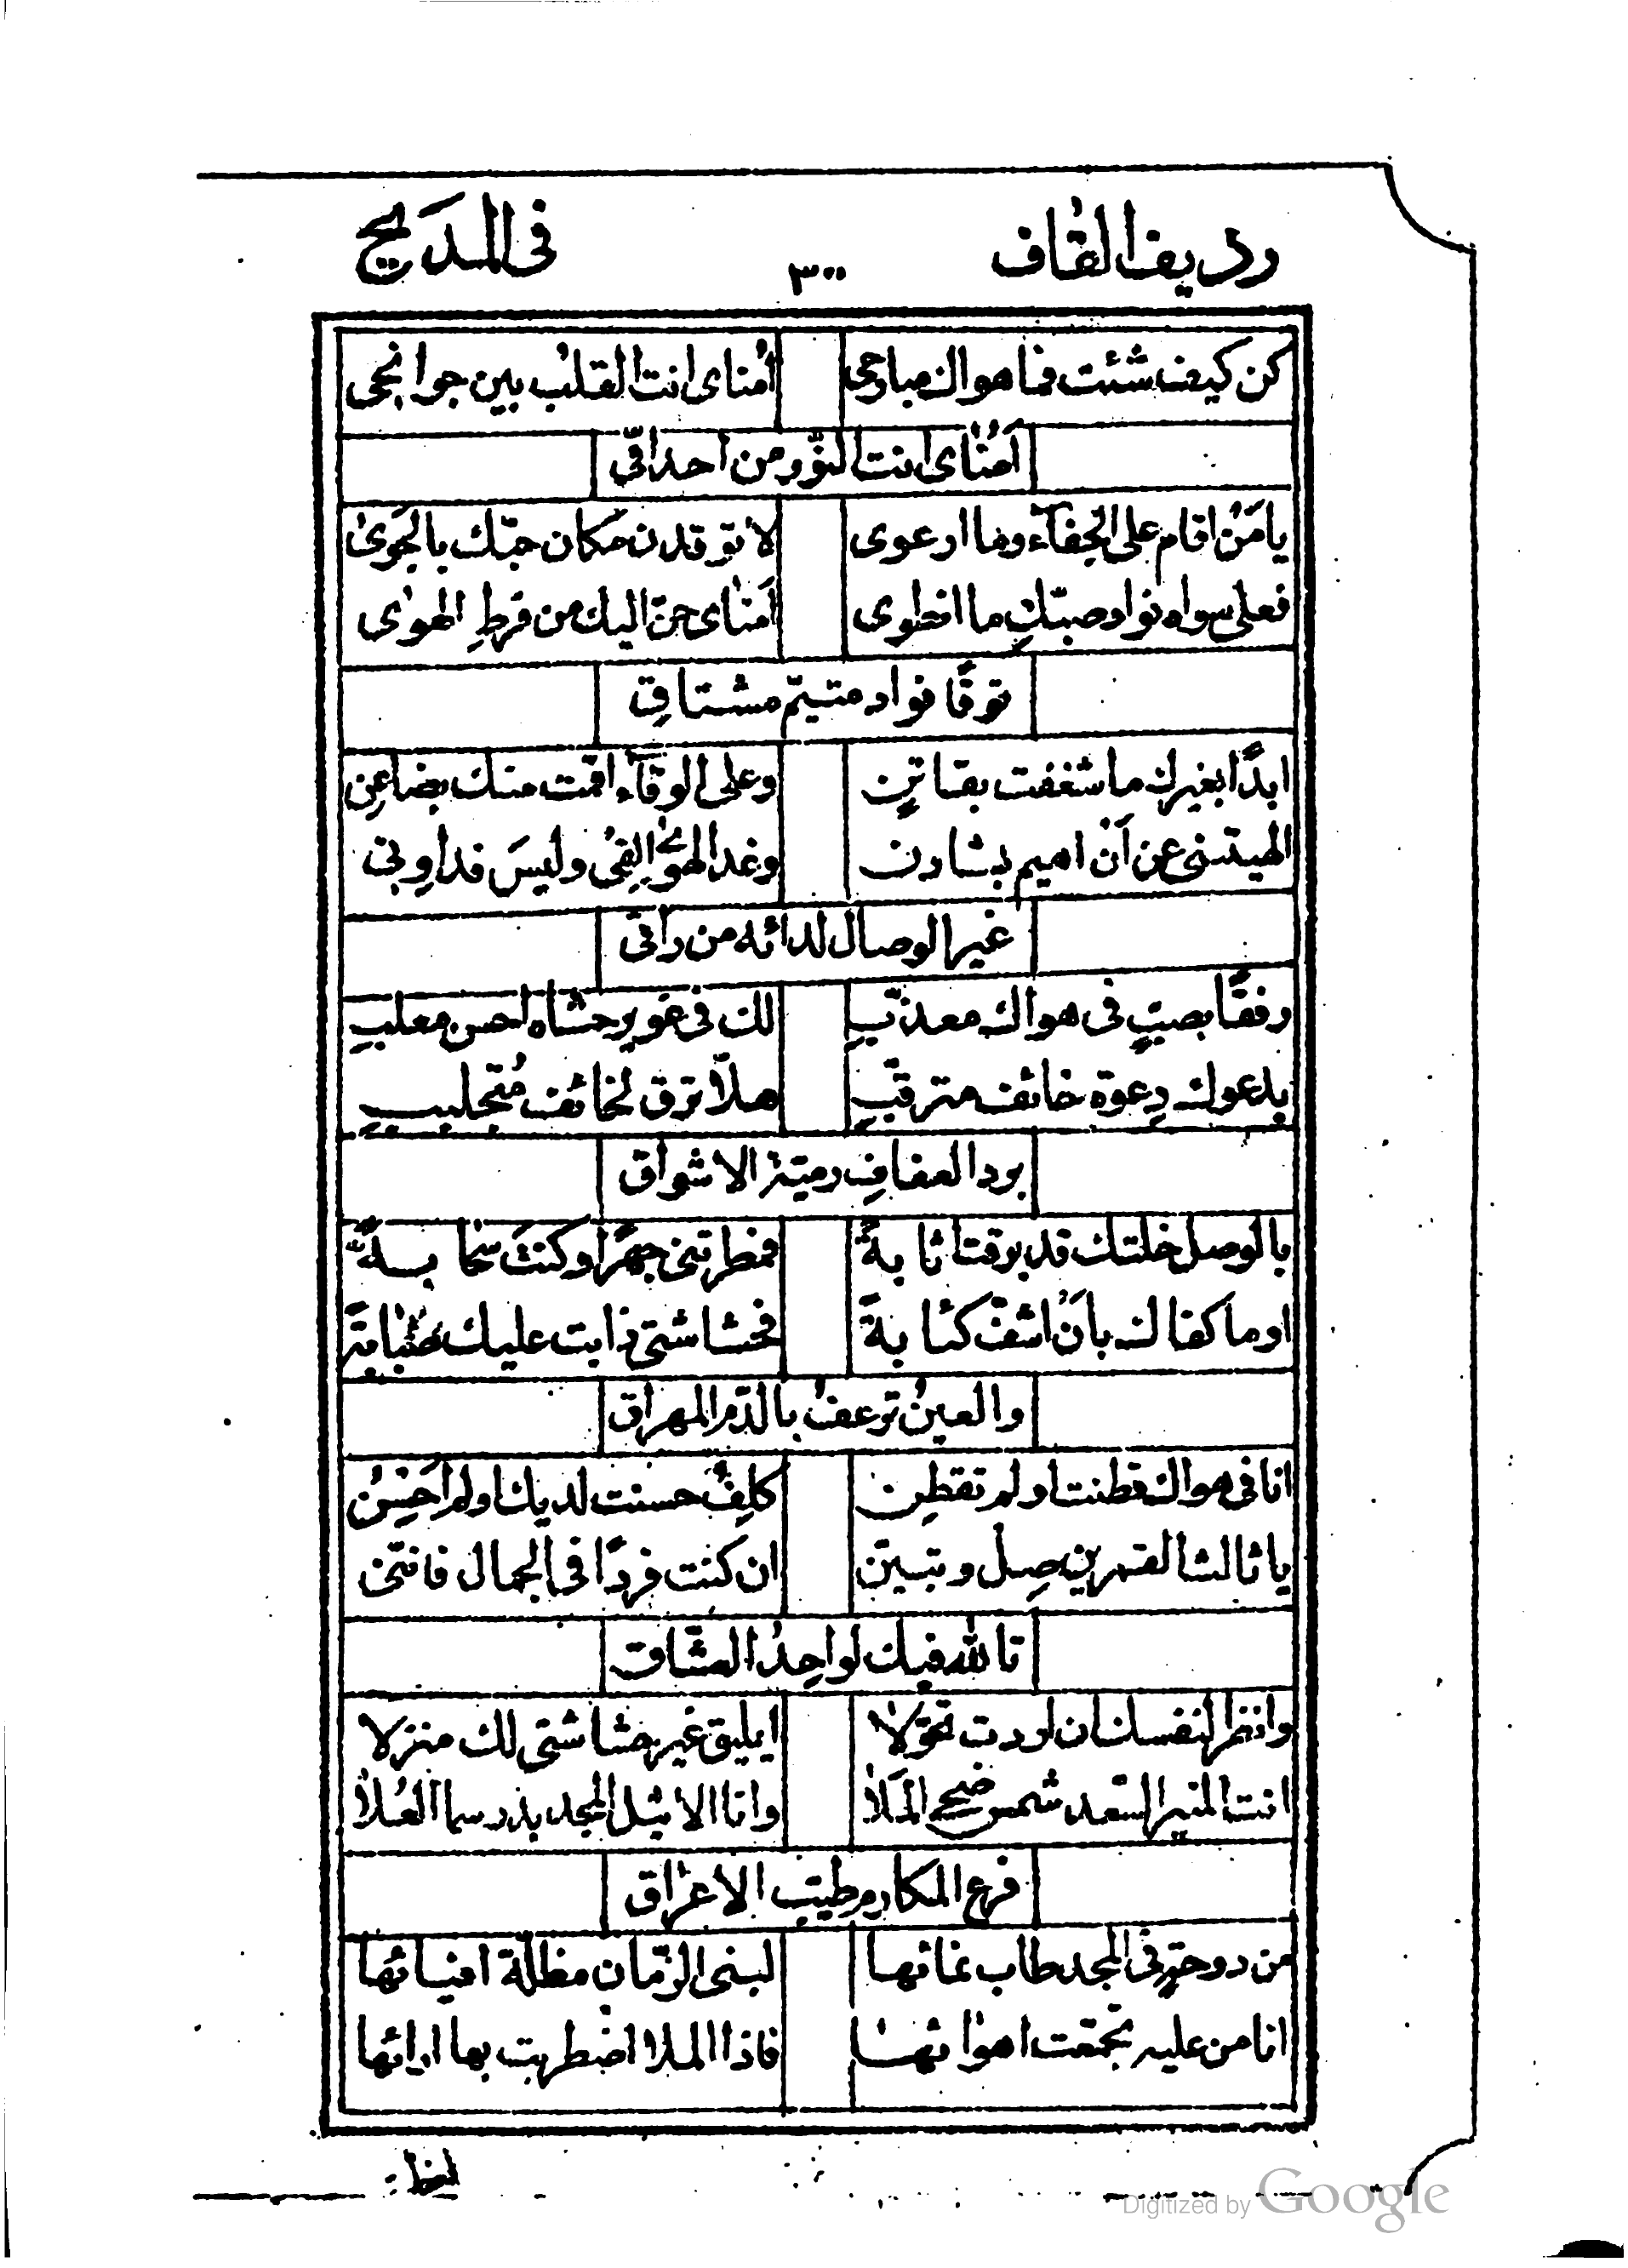 رديف القاف ٣٠٠ في المديح
كن كيف شئت فما هواك مبارحي امناي انت القلب بين جوانحي
أمناي انت النور من احداقي
يا من اقام على الجفآء وما ارعوى لا توقدن مكان حبّك بالجوى
فعلى سواه فواد صبّك ما انطوى أمناي حنّ اليك من فرط الهوى
توقًا فواد متيّم مشتاق
ابدًا بغيرك ما شغفت بفاتن وعلى الوفآء اقمت منك بضاعن
الهيتني عن أن اهيم بشادن وغدا الهوى إلفي وليس فداوني
غير الوصال لدائه من راقي
رفقًا بصبٍ في هواك معذّب لك في غوير حشاه احسن معلب
يدعوك دعوة خائف مترقّب هلّا ترق لخائف متجلبب
برد العفاف رميّة الاشواق
بالوصل خلتك قد برقت اثابةً فمطرتني جهرًا وكنت سحابةً
او ما كفاك بأن اشفّ كئابةً فحشاشتي ذابت عليك صبابةً
والعين ترعف بالدّم المهراق
انا في هواك فطنت او لم تفطن كلف حسنت لديك او لم احسن
يا ثالث القمرين صل وتبيّن ان كنت فردًا في الجمال فانني
تالله فيك لواحد العشّاق
وانظر لنفسك ان اردت تحوّلا ايليق غير حشاشتي لك منزلا
انت المنير السّعد شمس ضحى الملا وانا الاثيل المجد بدر سما العلا
فرع المكارم طيّب الاعراق
من دوحة في المجد طاب نمائها لبني الزّمان مظلّة افيائها
انا من عليه تجمّعت اهوائها فاذا الملا اضطربت بها ارائها
Digitized by Google